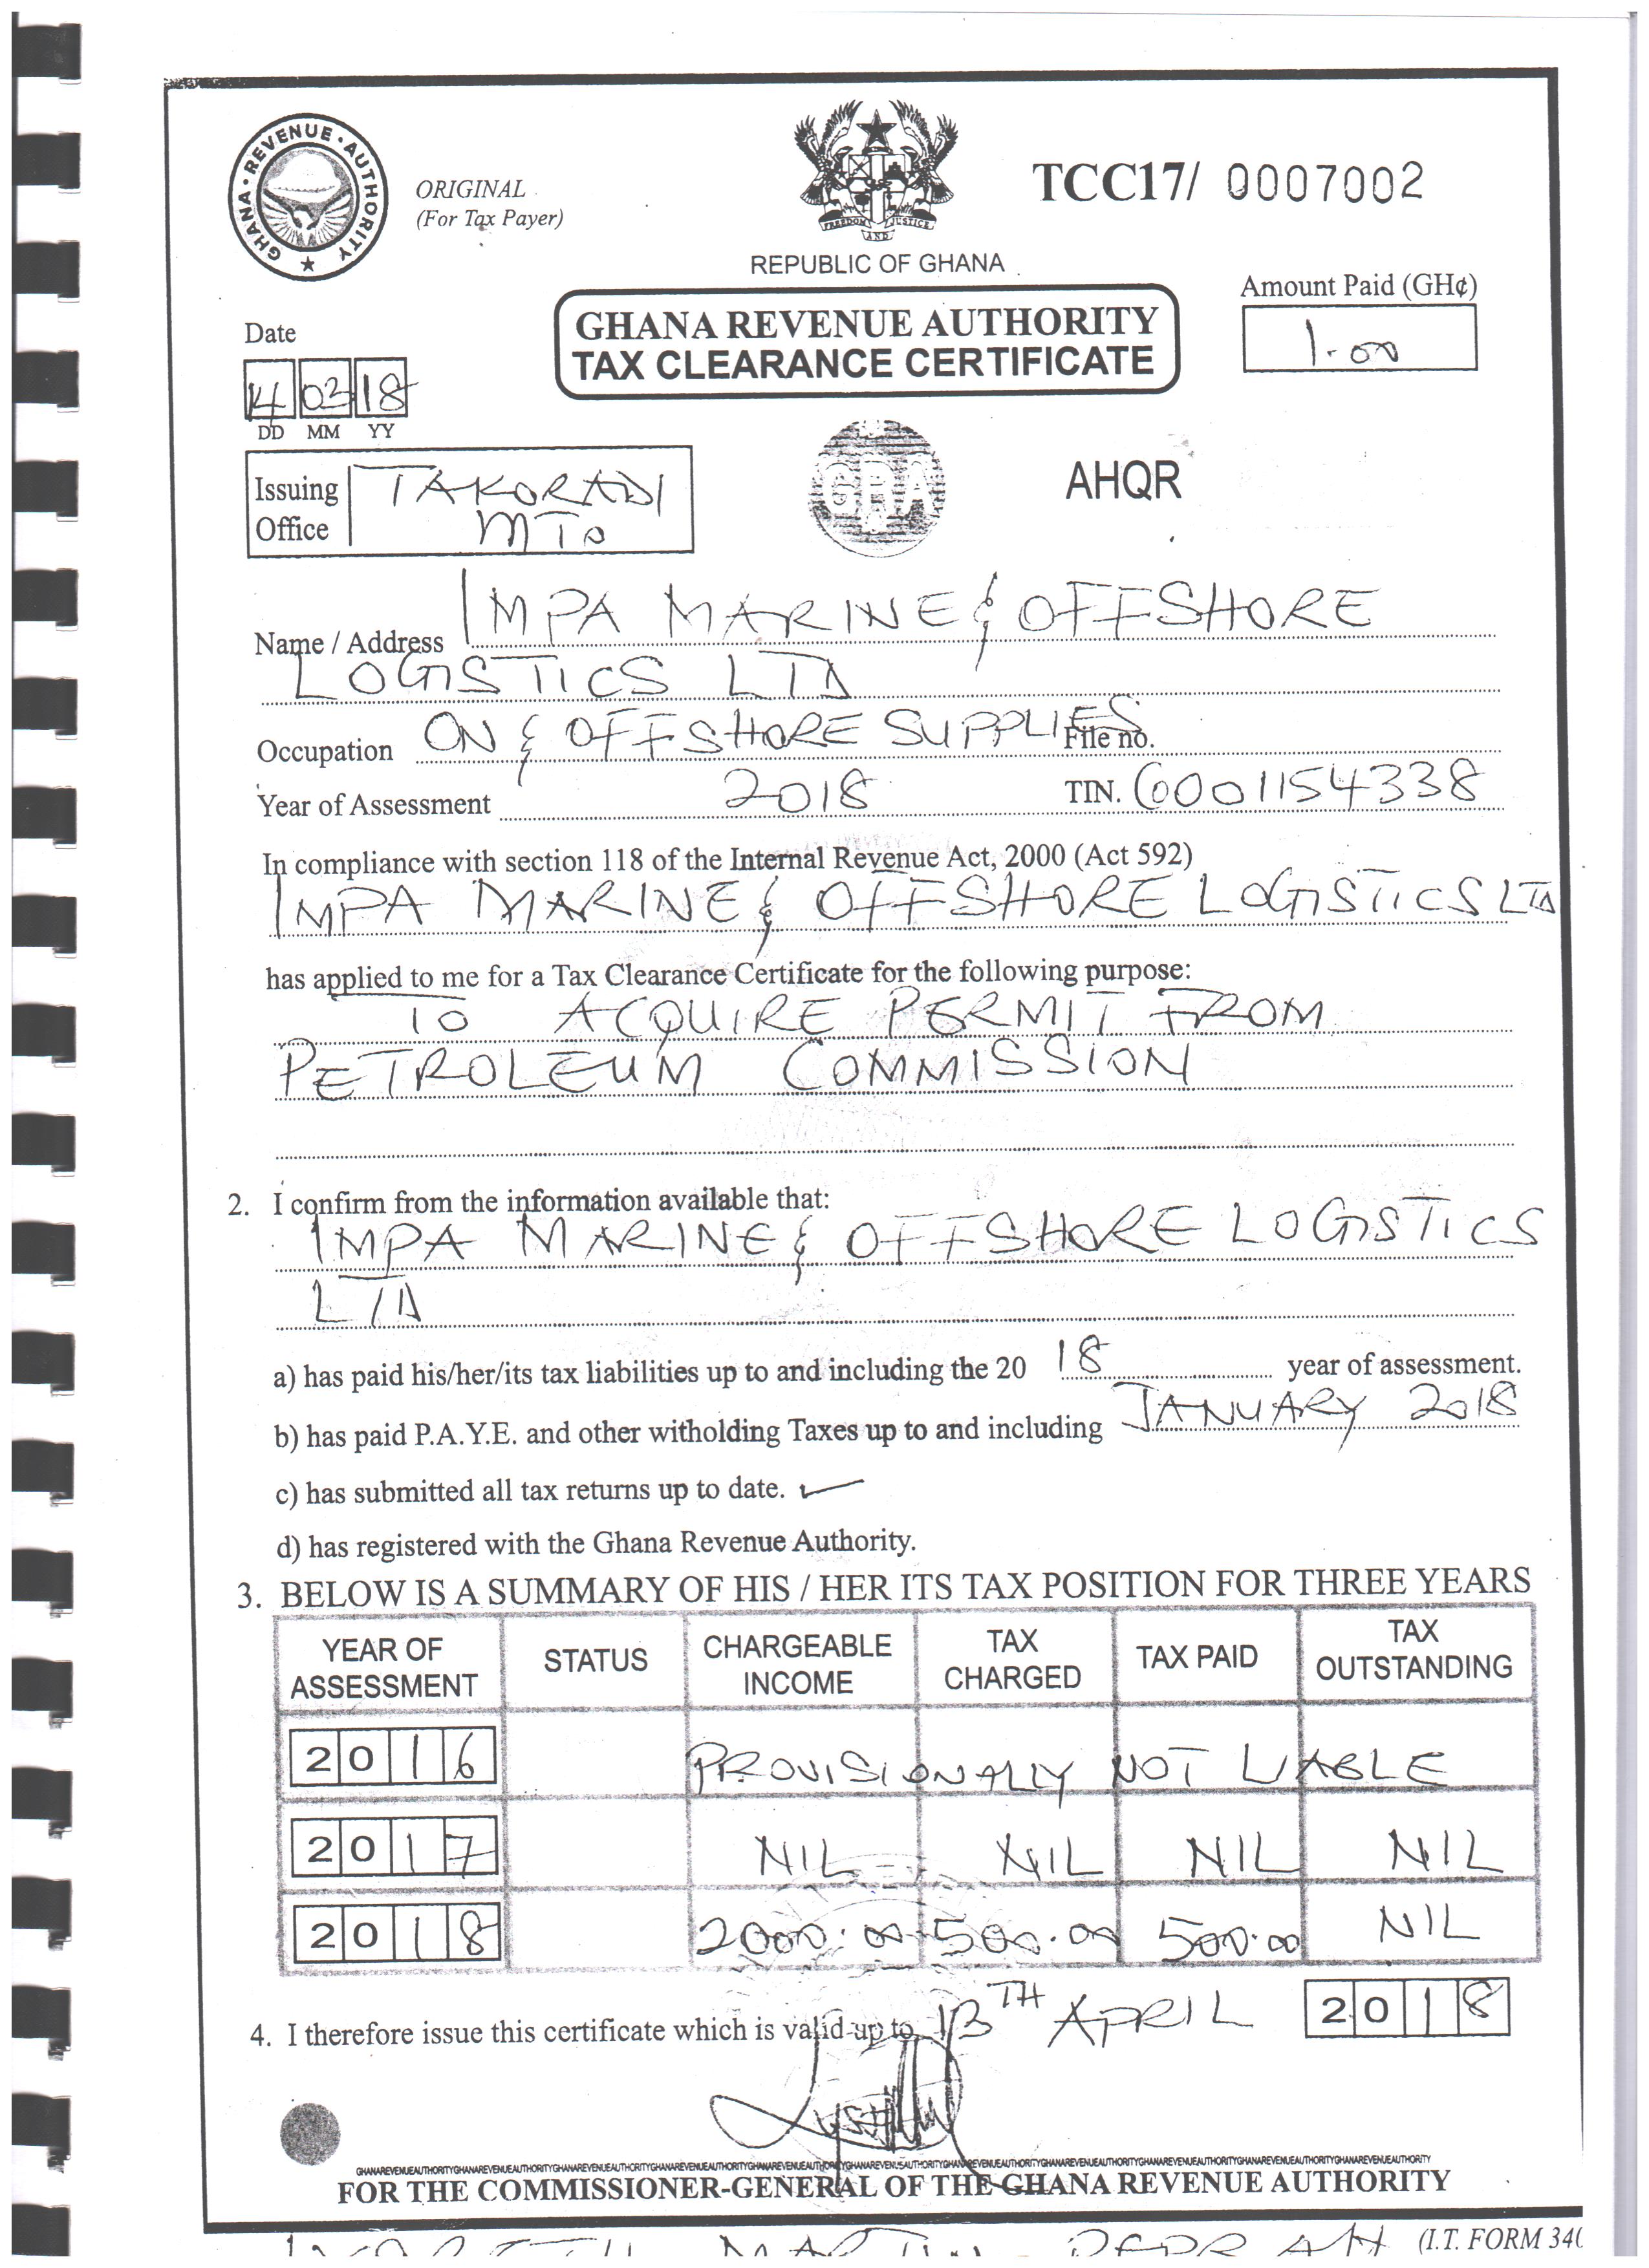 GHANA · REVENUE · AUTHORITY
ORIGINAL
(For Tax Payer)
FREEDOM AND JUSTICE
REPUBLIC OF GHANA
TCC17/ 0007002
Amount Paid (GH¢)
1.00
GHANA REVENUE AUTHORITY
TAX CLEARANCE CERTIFICATE
Date
14 03 18
DD MM YY
Issuing Office TAKORADI
MTO
GRA
AHQR
Name / Address IMPA MARINE & OFFSHORE
LOGISTICS LTD
Occupation ON & OFFSHORE SUPPLIES File no.
Year of Assessment 2018 TIN. C0001154338
In compliance with section 118 of the Internal Revenue Act, 2000 (Act 592)
IMPA MARINE & OFFSHORE LOGISTICS LTD
has applied to me for a Tax Clearance Certificate for the following purpose:
TO ACQUIRE PERMIT FROM
PETROLEUM COMMISSION
2. I confirm from the information available that:
IMPA MARINE & OFFSHORE LOGISTICS
LTD
a) has paid his/her/its tax liabilities up to and including the 20 18 year of assessment.
b) has paid P.A.Y.E. and other witholding Taxes up to and including JANUARY 2018
c) has submitted all tax returns up to date. ✓
d) has registered with the Ghana Revenue Authority.
3. BELOW IS A SUMMARY OF HIS / HER ITS TAX POSITION FOR THREE YEARS
YEAR OF ASSESSMENT STATUS CHARGEABLE INCOME TAX CHARGED TAX PAID TAX OUTSTANDING
2016 PROVISIONALLY NOT LIABLE
2017 NIL NIL NIL NIL
2018 2000.00 500.00 500.00 NIL
4. I therefore issue this certificate which is valid up to 13TH APRIL 2018
GHANAREVENUEAUTHORITYGHANAREVENUEAUTHORITYGHANAREVENUEAUTHORITYGHANAREVENUEAUTHORITY
FOR THE COMMISSIONER-GENERAL OF THE GHANA REVENUE AUTHORITY
(I.T. FORM 340